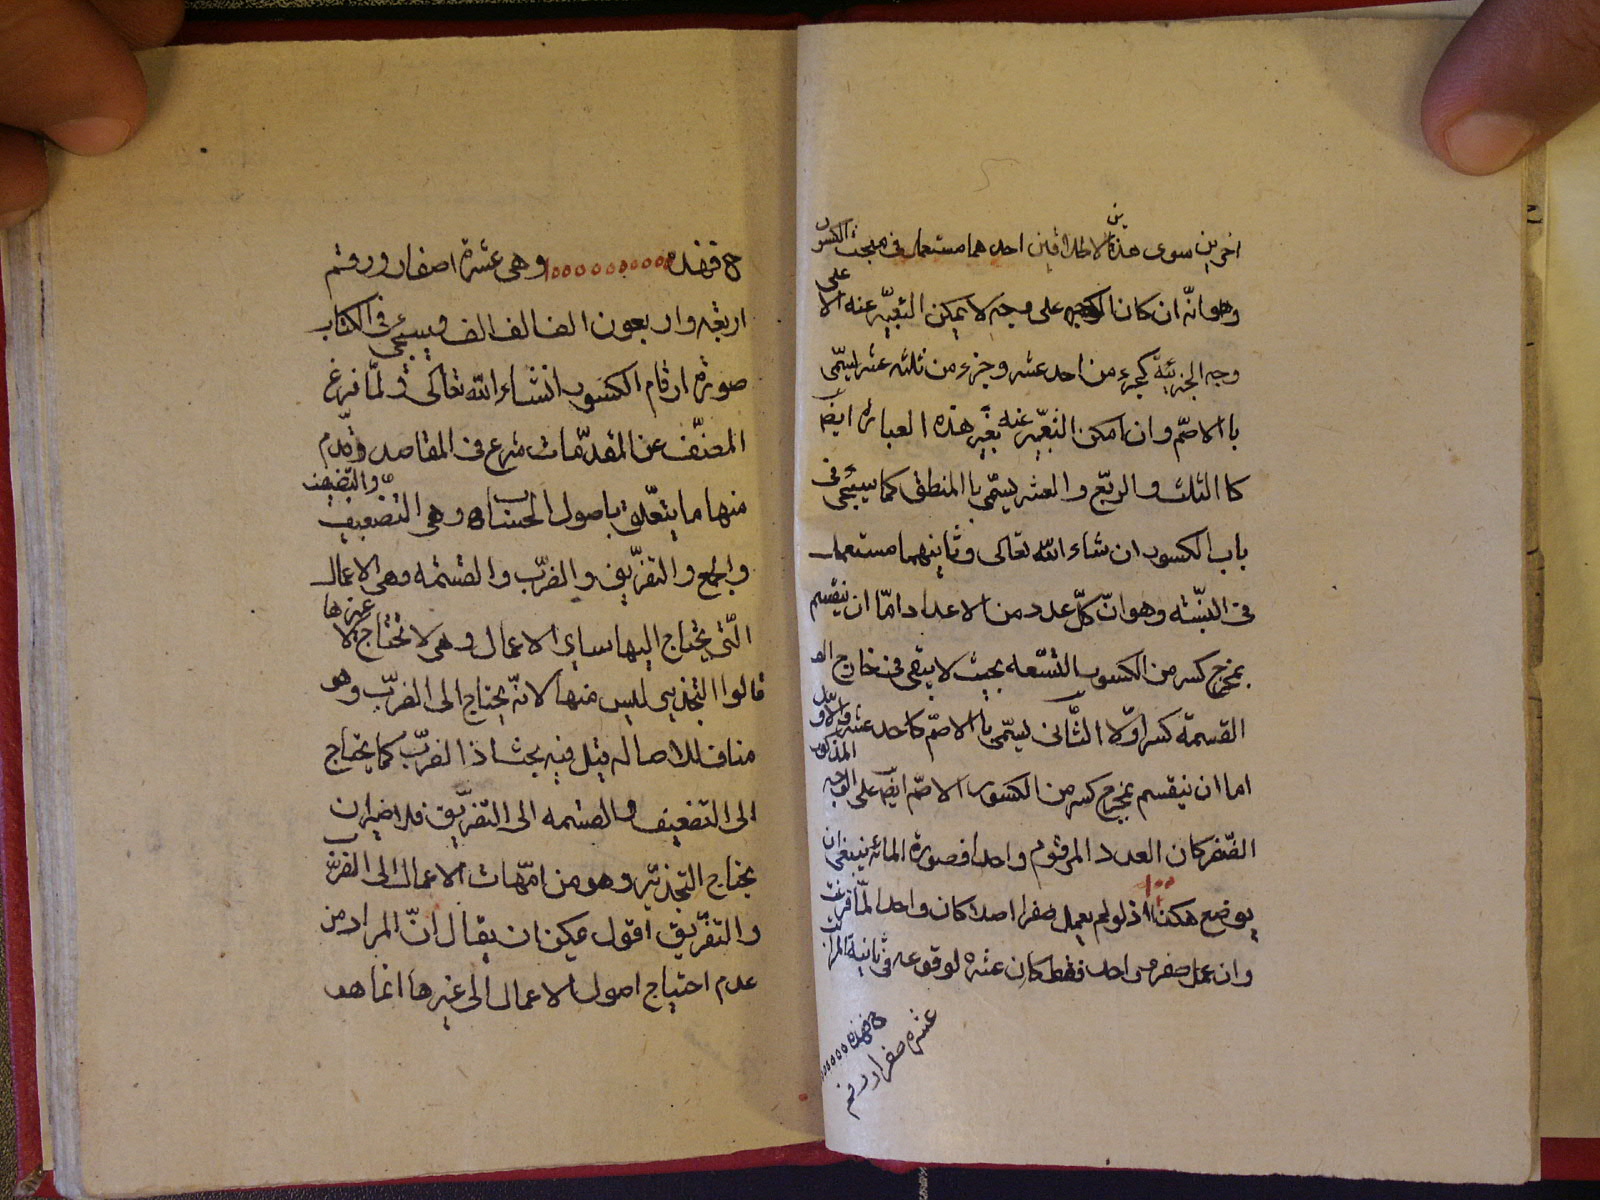 اخرين سوى هذين الاطلاقين احدهما مستعمل فى مبحث الكسور
وهو انّه ان كان الكسر على وجه لا يمكن التعبير عنه الا على
وجه الجزئيّة كجزء من احد عشر وجزء من ثلثه عشر يسمّى
با الاصمّ وان امكن التعبير عنه بغير هذه العباره ايضا
كا الثلث والربع والعشر يسمّى با المنطق كما سيجئ فى
باب الكسور ان شاء الله تعالى وثانيهما مستعمل
فى النسبته وهو انّ كلّ عدد من الاعداد امّا ان ينقسم
بمخرج كسر من الكسور التسعه بحيث لا يبقى فى خارج
القسمة كسر اوّلا الثّانى يسمّى با الاصمّ كاحد عشر والاوّل
المذكور
اما ان ينقسم بمخرج كسر من الكسور الاصمّ ايضا على الوجه
الصّفر كان العدد المرقوم واحدا فصورة المائه ينبغى ان
يوضع هكذا ١٠٠ اذ لو لم يعمل صفرا اصلا كان واحدا لمّا فرغت
وان عمل صفر واحد فقط كان عشره لوقوعه فى ثانية المراتب
عشره صفرا ورقم
ح فهذه ١٠٠٠٠٠٠٠٠٠٠ وهى عشرة اصفار ورقم
اربعه واربعون الف الف الف وسيجئ فى الكتاب
صورة ارقام الكسور انشاء الله تعالى ولمّا فرغ
المصنّف عن المقدّمات شرع فى المقاصد وقدّم
منها ما يتعلّق باصول الحساب وهى التضعيف والتنصيف
والجمع والتفريق والضرب والقسمه وهى الاعمال
الّتى يحتاج اليها ساير الاعمال وهى لا تحتاج الا غيرها
قالوا التجذير ليس منها لانّه يحتاج الى الضرب وهو
مناف للاصاله قيل فيه بحث اذ الضرب كما يحتاج
الى التضعيف والقسمه الى التفريق فلا ضير ان
يحتاج التجذير وهو من امّهات الاعمال الى الضرب
والتفريق اقول يمكن ان يقال انّ المراد من
عدم احتياج اصول الاعمال الى غيرها انما هو